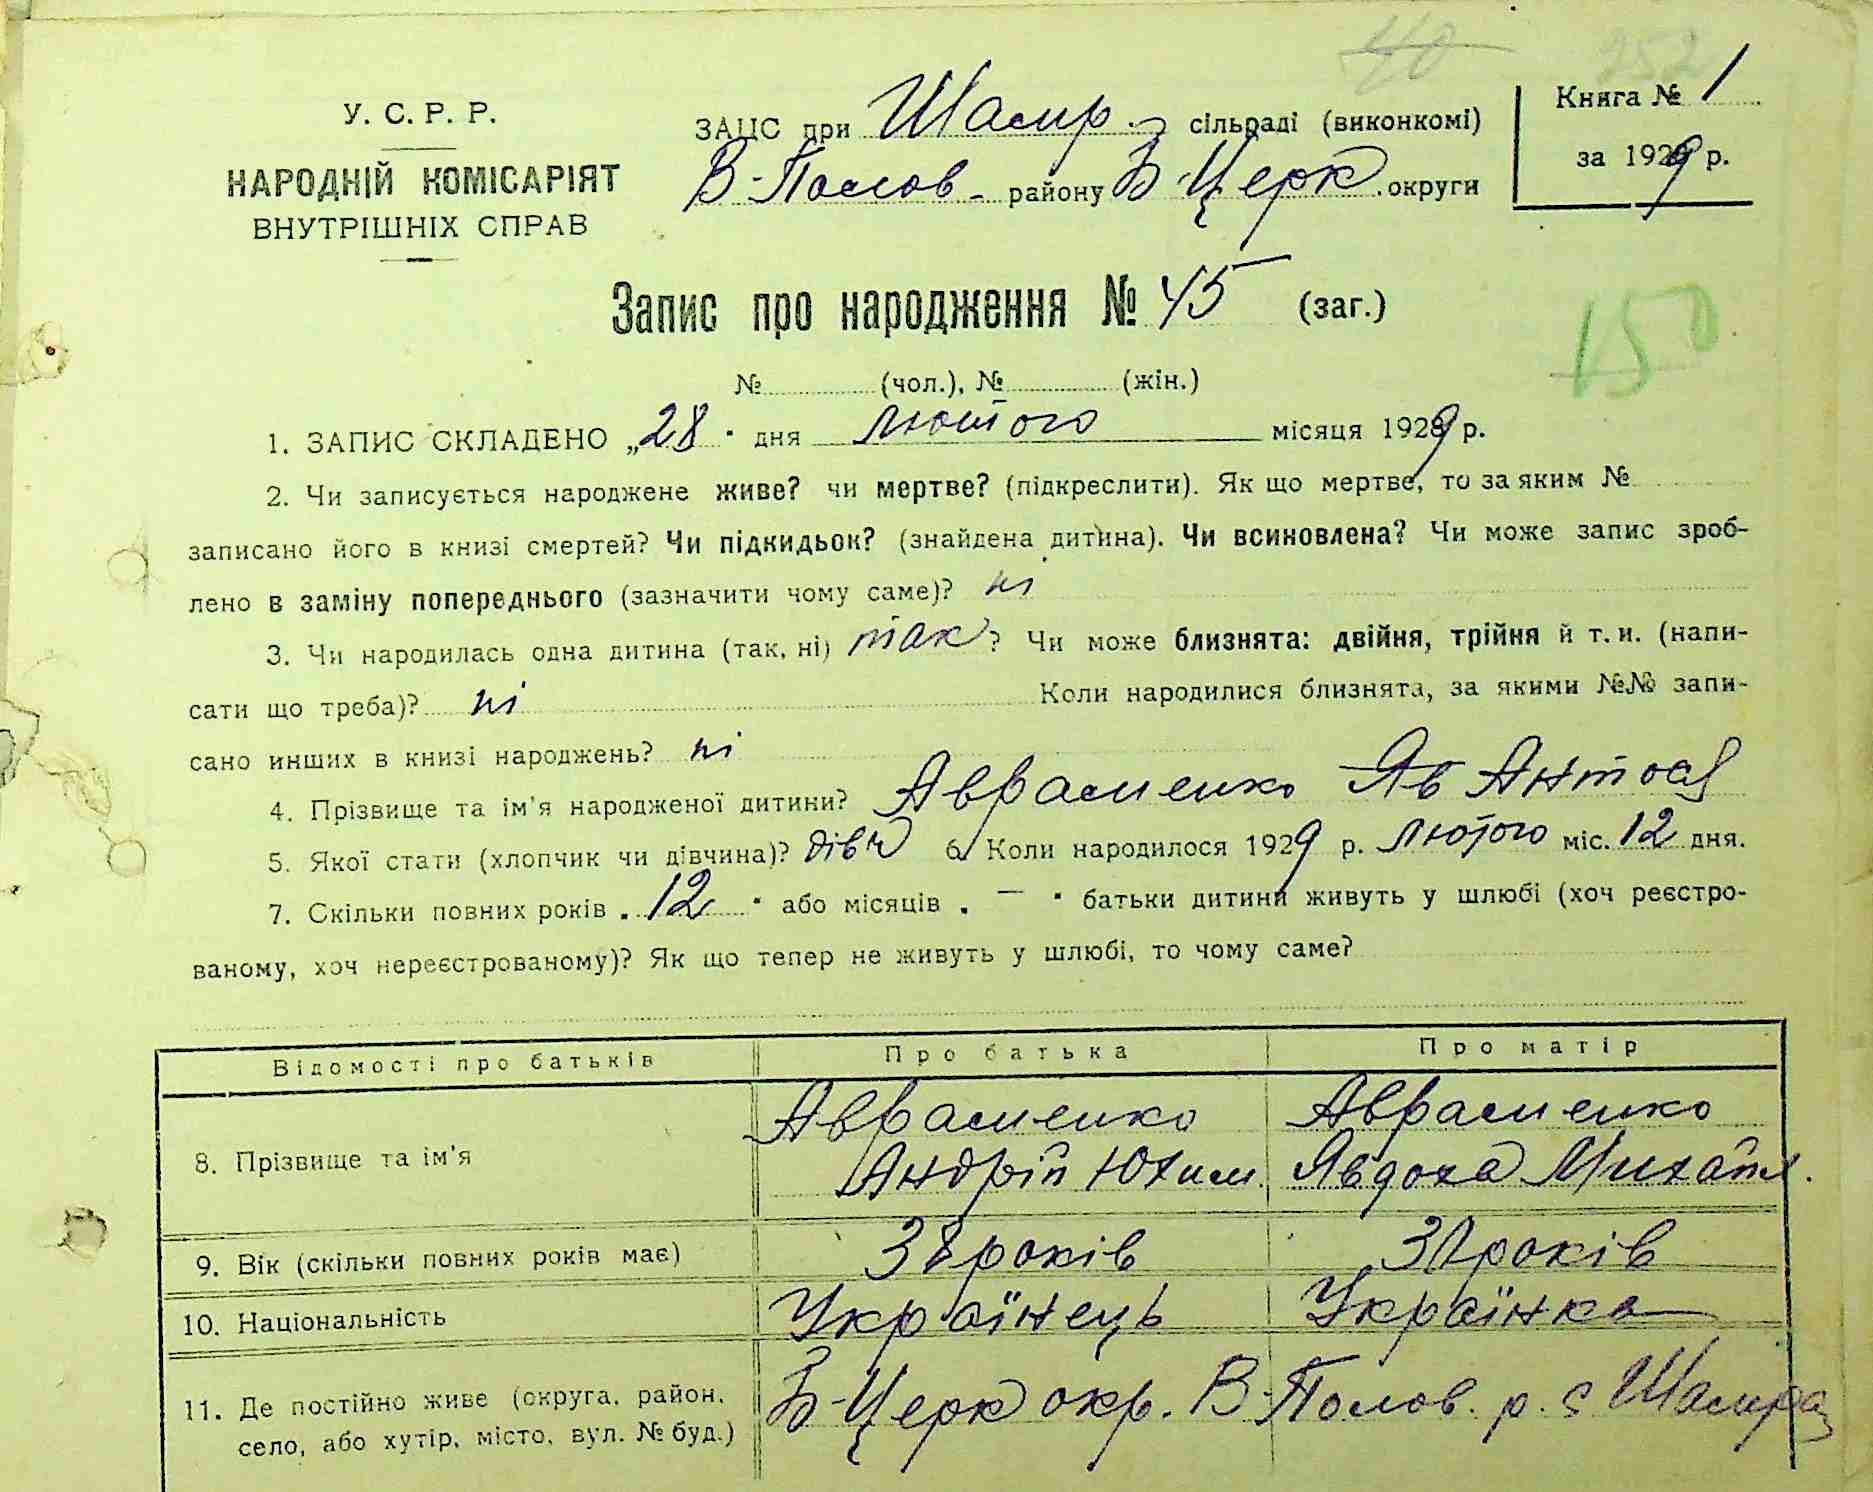 40 252
У. С. Р. Р.
НАРОДНІЙ КОМІСАРІЯТ
ВНУТРІШНІХ СПРАВ
ЗАЦС при Шамр. сільраді (виконкомі)
В-Полов- району Б-Церк. округи
Книга № 1
за 1929 р.
Запис про народження № 45 (заг.)
150
№ (чол.), № (жін.)
1. ЗАПИС СКЛАДЕНО „28" дня лютого місяця 1929 р.
2. Чи записується народжене живе? чи мертве? (підкреслити). Як що мертве, то за яким №
записано його в книзі смертей? Чи підкидьок? (знайдена дитина). Чи всиновлена? Чи може запис зроб-
лено в заміну попереднього (зазначити чому саме)? ні
3. Чи народилась одна дитина (так, ні) так? Чи може близнята: двійня, трійня й т. и. (напи-
сати що треба)? ні Коли народилися близнята, за якими №№ запи-
сано инших в книзі народжень? ні
4. Прізвище та ім'я народженої дитини? Авраменко Яв Антося
5. Якої стати (хлопчик чи дівчина)? дівч 6. Коли народилося 1929 р. лютого міс. 12 дня.
7. Скільки повних років „12" або місяців „—" батьки дитини живуть у шлюбі (хоч реєстро-
ваному, хоч нереєстрованому)? Як що тепер не живуть у шлюбі, то чому саме?
Відомості про батьків Про батька Про матір
8. Прізвище та ім'я Авраменко Андрій Юхим. Авраменко Явдоха Михайл.
9. Вік (скільки повних років має) 38 років років
10. Національність Українець Українка
11. Де постійно живе (округа, район,
село, або хутір, місто, вул. № буд.) Б-Церк окр. В-Полов. р. с Шамра